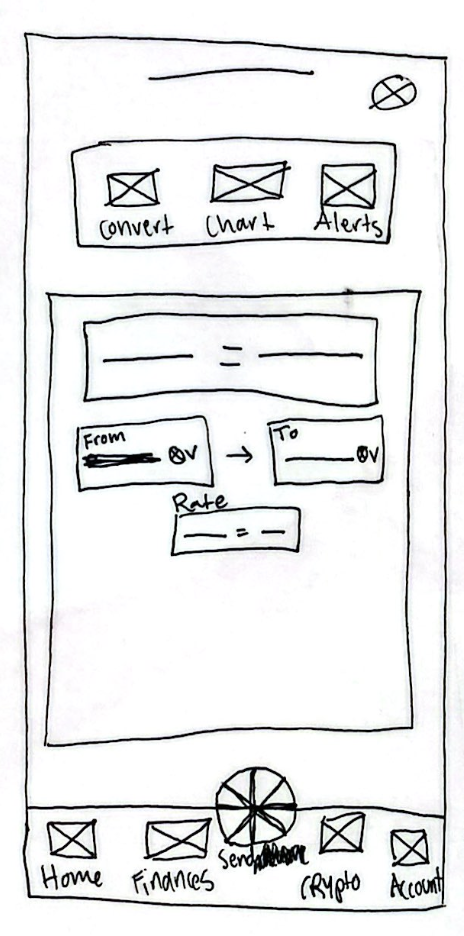 Convert Chart Alerts
=
From To
→
Rate
=
Home Finances Send CRypto Account